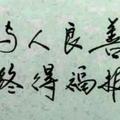 為人良善
终得福报